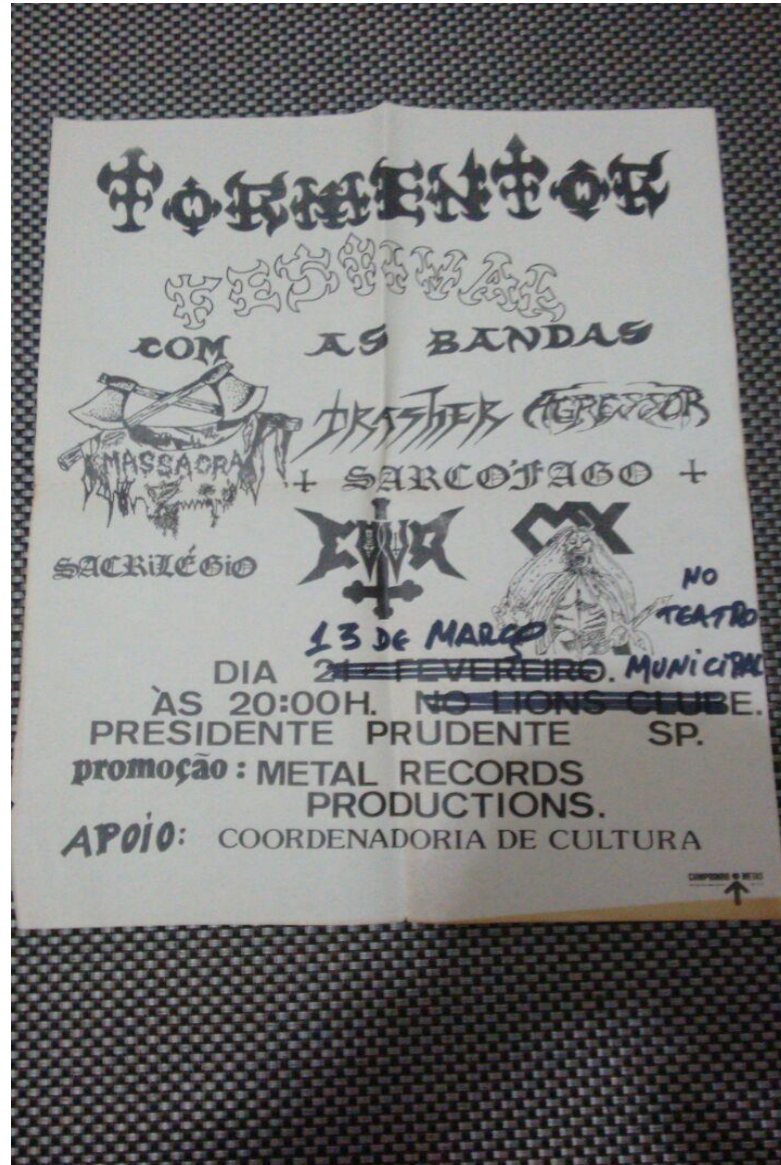 TORMENTOR
FESTIVAL
COM AS BANDAS
MASSACRA
TRASHER AGRESSOR
SARCÓFAGO
SACRILÉGIO
MX
13 DE MARÇO
NO
TEATRO
MUNICIPAL
DIA 21 FEVEREIRO.
ÀS 20:00H. NO LIONS CLUBE.
PRESIDENTE PRUDENTE SP.
promoção: METAL RECORDS
PRODUCTIONS.
APOIO: COORDENADORIA DE CULTURA
CUMPRINDO METAS